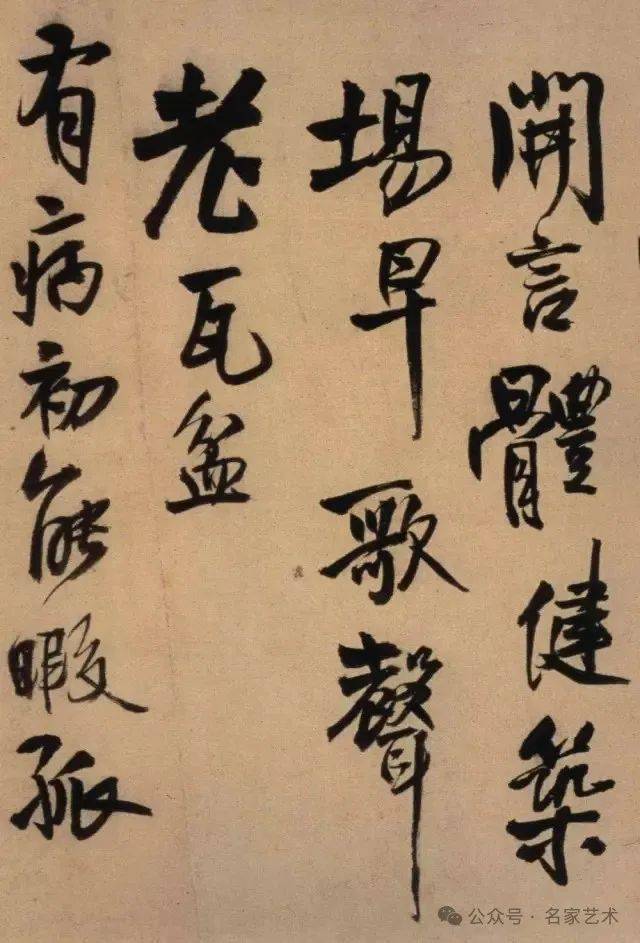 開言體健築
場早歌聲
老瓦盆
有病初能暇孤
公众号 · 名家艺术